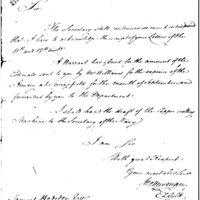 Sir,
The Secretary still continues so much indisposed
that I have to acknowledge the receipt of your Letters of the
11th and 12th inst.
A Warrant has issued for the amount of the
Estimate sent to you by Mr Williams for the expenses of the
for the month of
forwarded by you to the Department.
I shall hand the draft of the Copper rolling
Machine to the Secretary of the Navy
I am Sir
With great Respect
Your most obedient
Samuel Hodgdon Esqr